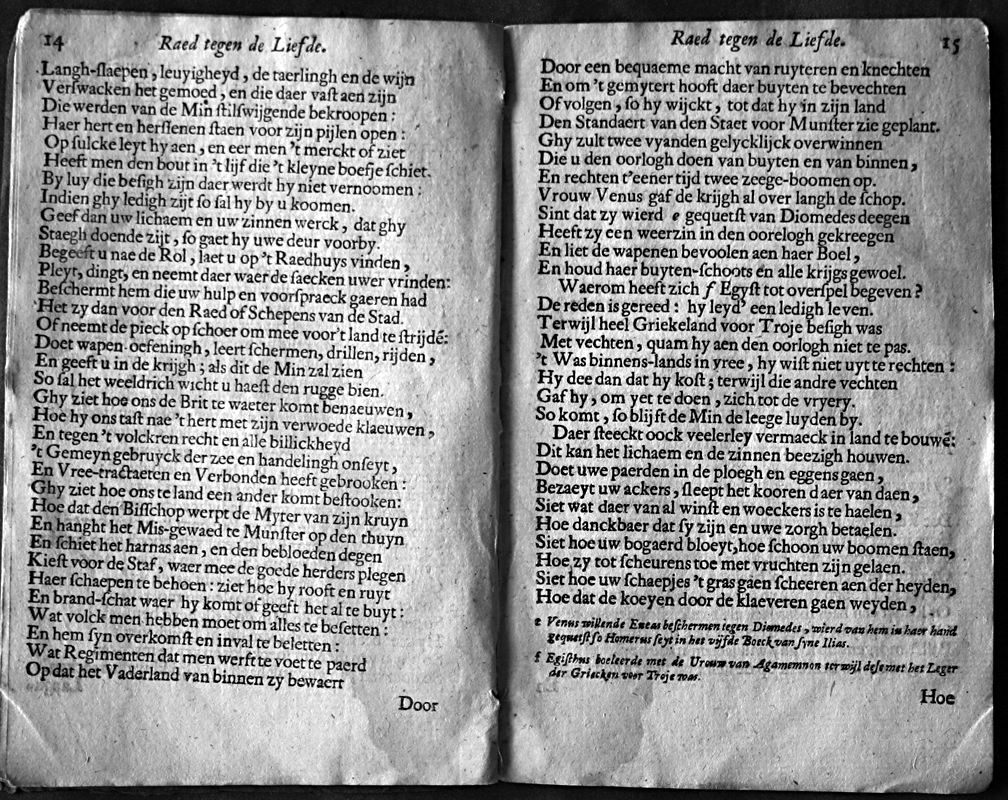 14 Raed tegen de Liefde.
Langh-slaepen, leuyigheyd, de taerlingh en de wijn
Verswacken het gemoed, en die daer vast aen zijn
Die werden van de Min stilswijgende bekroopen:
Haer hert en herssenen staen voor zijn pijlen open:
Op sulcke leyt hy aen, en eer men 't merckt of ziet
Heeft men den bout in 't lijf die 't kleyne boefje schiet.
By luy die besigh zijn daer werdt hy niet vernoomen:
Indien ghy ledigh zijt so sal hy by u koomen.
Geef dan uw lichaem en uw zinnen werck, dat ghy
Staegh doende zijt, so gaet hy uwe deur voorby.
Begeeft u nae de Rol, laet u op 't Raedhuys vinden,
Pleyt, dingt, en neemt daer waer de saecken uwer vrinden:
Beschermt hem die uw hulp en voorspraeck gaeren had
Het zy dan voor den Raed of Schepens van de Stad.
Of neemt de pieck op schoer om mee voor't land te strijdē:
Doet wapen-oefeningh, leert schermen, drillen, rijden,
En geeft u in de krijgh; als dit de Min zal zien
So sal het weeldrich wicht u haest den rugge bien.
Ghy ziet hoe ons de Brit te waeter komt benaeuwen,
Hoe hy ons tast nae 't hert met zijn verwoede klaeuwen,
En tegen 't volckren recht en alle billickheyd
't Gemeyn gebruyck der zee en handelingh onseyt,
En Vree-tractaeten en Verbonden heeft gebrooken:
Ghy ziet hoe ons te land een ander komt bestooken:
Hoe dat den Bisschop werpt de Myter van zijn kruyn
En hanght het Mis-gewaed te Munster op den thuyn
En schiet het harnas aen, en den bebloeden degen
Kiest voor de Staf, waer mee de goede herders plegen
Haer schaepen te behoen: ziet hoe hy rooft en ruyt
En brand-schat waer hy komt of geeft het al te buyt:
Wat volck men hebben moet om alles te besetten:
En hem syn overkomst en inval te beletten:
Wat Regimenten dat men werft te voet te paerd
Op dat het Vaderland van binnen zy bewaert
Door
Raed tegen de Liefde. 15
Door een bequaeme macht van ruyteren en knechten
En om 't gemytert hooft daer buyten te bevechten
Of volgen, so hy wijckt, tot dat hy in zijn land
Den Standaert van den Staet voor Munster zie geplant.
Ghy zult twee vyanden gelycklijck overwinnen
Die u den oorlogh doen van buyten en van binnen,
En rechten t'eener tijd twee zeege-boomen op.
Vrouw Venus gaf de krijgh al over langh de schop.
Sint dat zy wierd e gequetst van Diomedes deegen
Heeft zy een weerzin in den oorelogh gekreegen
En liet de wapenen bevoolen aen haer Boel,
En houd haer buyten-schoots en alle krijgs gewoel.
Waerom heeft zich f Egyst tot overspel begeven?
De reden is gereed: hy leyd' een ledigh leven.
Terwijl heel Griekeland voor Troje besigh was
Met vechten, quam hy aen den oorlogh niet te pas.
't Was binnens-lands in vree, hy wist niet uyt te rechten:
Hy dee dan dat hy kost; terwijl die andre vechten
Gaf hy, om yet te doen, zich tot de vryery.
So komt, so blijft de Min de leege luyden by.
Daer steeckt oock veelerley vermaeck in land te bouwē:
Dit kan het lichaem en de zinnen beezigh houwen.
Doet uwe paerden in de ploegh en eggens gaen,
Bezaeyt uw ackers, sleept het kooren daer van daen,
Siet wat daer van al winst en woeckers is te haelen,
Hoe danckbaer dat sy zijn en uwe zorgh betaelen.
Siet hoe uw bogaerd bloeyt, hoe schoon uw boomen staen,
Hoe zy tot scheurens toe met vruchten zijn gelaen.
Siet hoe uw schaepjes 't gras gaen scheeren aen der heyden,
Hoe dat de koeyen door de klaeveren gaen weyden,
e Venus willende Eneas beschermen tegen Diomedes, wierd van hem in haer hand
gequetst so Homerus seyt in het vijfde Boeck van syne Ilias.
f Egisthus boeleerde met de Vrouw van Agamemnon terwijl dese met het Leger
der Griecken voor Troje was.
Hoe